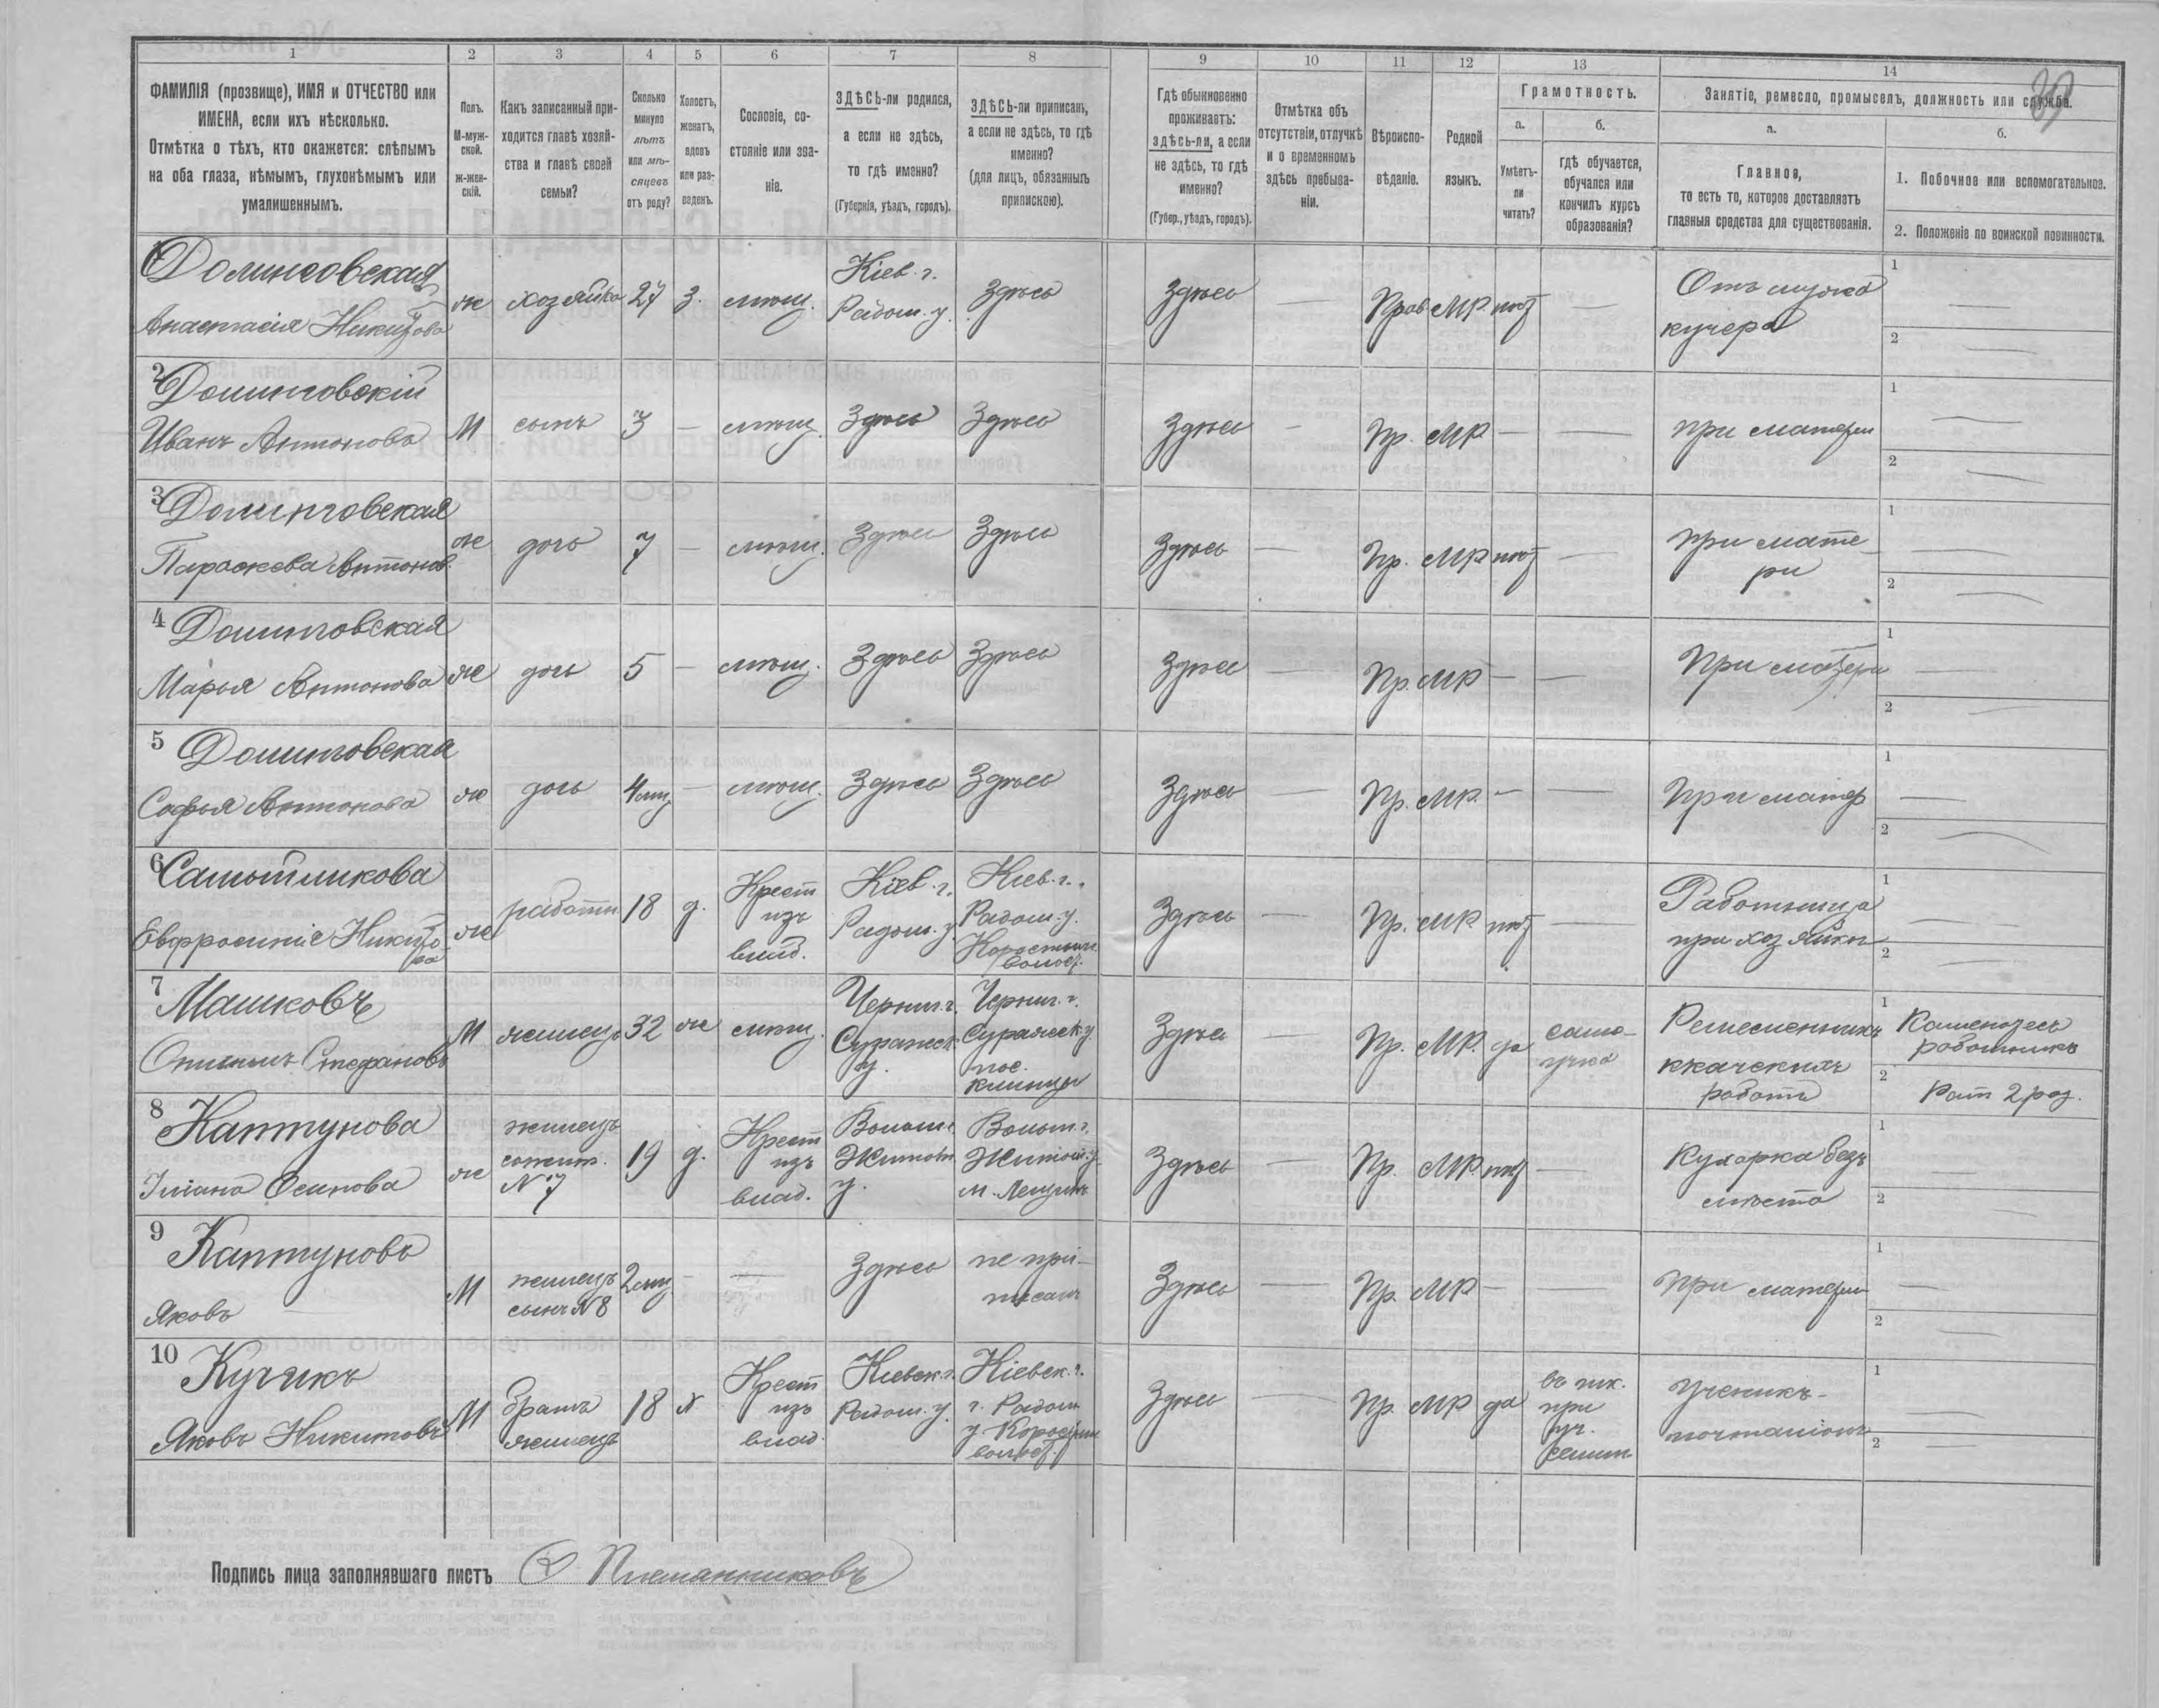 39
1 2 3 4 5 6 7 8 9 10 11 12 13 14
ФАМИЛІЯ (прозвище), ИМЯ и ОТЧЕСТВО или
ИМЕНА, если ихъ нѣсколько.
Отмѣтка о тѣхъ, кто окажется: слѣпымъ
на оба глаза, нѣмымъ, глухонѣмымъ или
умалишеннымъ.
Полъ.
М-муж-
ской.
ж-жен-
скій.
Какъ записанный при-
ходится главѣ хозяй-
ства и главѣ своей
семьи?
Сколько
минуло
лѣтъ
или мѣ-
сяцевъ
отъ роду?
Холостъ,
женатъ,
вдовъ
или раз-
веденъ.
Сословіе, со-
стояніе или зва-
ніе.
ЗДѢСЬ-ли родился,
а если не здѣсь,
то гдѣ именно?
(Губернія, уѣздъ, городъ).
ЗДѢСЬ-ли приписанъ,
а если не здѣсь, то гдѣ
именно?
(для лицъ, обязанныхъ
припискою).
Гдѣ обыкновенно
проживаетъ:
здѣсь-ли, а если
не здѣсь, то гдѣ
именно?
(Губер., уѣздъ, городъ).
Отмѣтка объ
отсутствіи, отлучкѣ
и о временномъ
здѣсь пребыва-
ніи.
Вѣроиспо-
вѣданіе.
Родной
языкъ.
Грамотность.
а.
Умѣетъ-
ли
читать?
б.
гдѣ обучается,
обучался или
кончилъ курсъ
образованія?
Занятіе, ремесло, промыселъ, должность или служба.
а.
Главное,
то есть то, которое доставляетъ
главныя средства для существованія.
б.
1. Побочное или вспомогательное.
2. Положеніе по воинской повинности.
1
Анастасія Никитова
ж хозяйка 27 з. мѣщ.
Кіев. г.
Радом. у.
Здѣсь Здѣсь — Прав МР. нѣт —
Отъ мужа
кучера
1 —
2 —
2
Иванъ Антоновъ
М сынъ 3 — мѣщ. Здѣсь Здѣсь Здѣсь — Пр. МР — — при матери
1 —
2 —
3
Параскева Антонов.
ж дочь 7 — мѣщ. Здѣсь Здѣсь Здѣсь — Пр. МР нѣт —
при мате
ри
1 —
2 —
4
Марья Антонова
ж дочь 5 — мѣщ. Здѣсь Здѣсь Здѣсь — Пр. МР — — При матери
1 —
2 —
5
Софья Антонова
ж дочь 4 мц — мѣщ. Здѣсь Здѣсь Здѣсь — Пр. МР. — — При матер
1 —
2 —
6
Евфросинія Никито
ва
ж работн. 18 д.
Крест
изъ
влад.
Кіев. г.
Радом. у.
Кіев. г.
Радом. у.
волост.
Здѣсь — Пр. МР нѣт —
Работница
при хозяйкѣ
1 —
2 —
7 Машковъ
Стефановъ
М жилецъ 32 ж мѣщ.
Черниг. г.
Суражск
у.
Черниг. г.
Суражск у.
пос.
Клинцы
Здѣсь Пр. МР. да
само-
учка
Ремесленникъ
работъ
1
работникъ
2 Рат 2 раз.
8 Каптунова
Осипова
ж
жилецъ
сожит.
№ 7
19 д.
Крест
изъ
влад.
Волын. г.
Житом.
у.
Волын. г.
Житом. у.
Здѣсь — Пр. МР. нѣт —
Кухарка безъ
мѣста
1 —
2 —
9 Каптуновъ
Яковъ —
М
жилецъ
сынъ № 8
2 мц — — Здѣсь
не при-
писанъ
Здѣсь — Пр. МР — — при матери
1 —
2 —
10 Кучикъ
Яковъ Никитовъ
М
Братъ
жилецъ
18 х
Крест
изъ
влад.
Кіевск. г.
Радом. у.
Кіевск. г.
г. Радом
волост.
Здѣсь — Пр. МР да
въ шк.
при
уч.
семин
ученикъ-
почталіонъ
1
2
Подпись лица заполнявшаго листъ